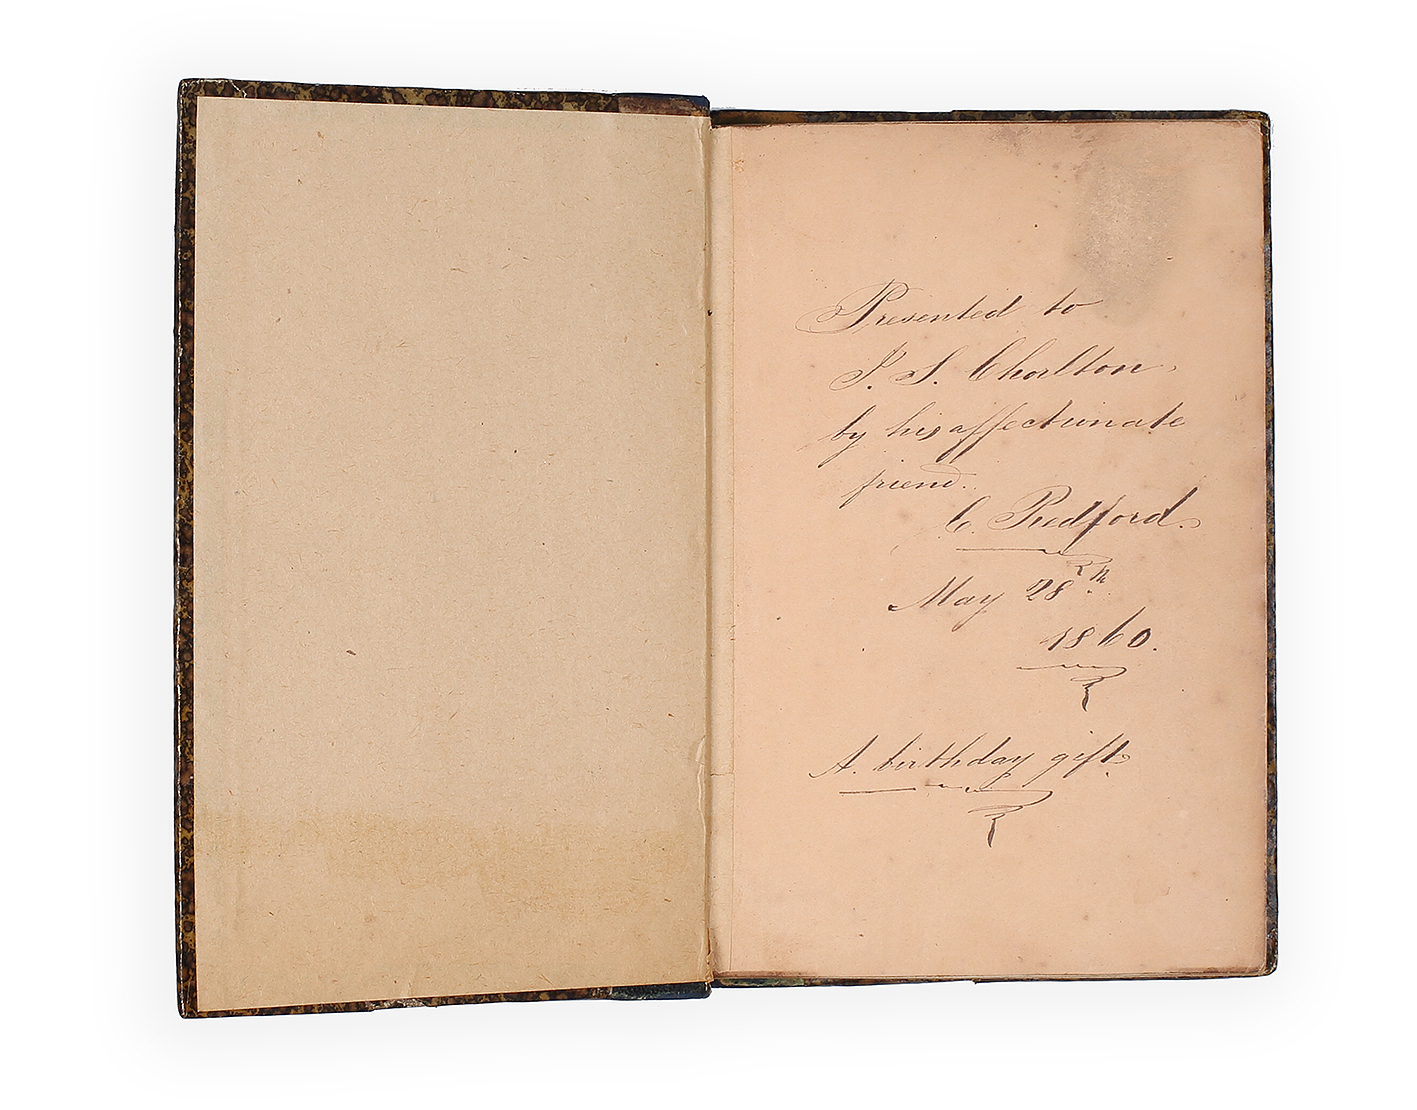 Presented to
J. S. Chorlton
by his affectionate
friend.
C. Redford.
May 28th
1860.
A. birthday gift.